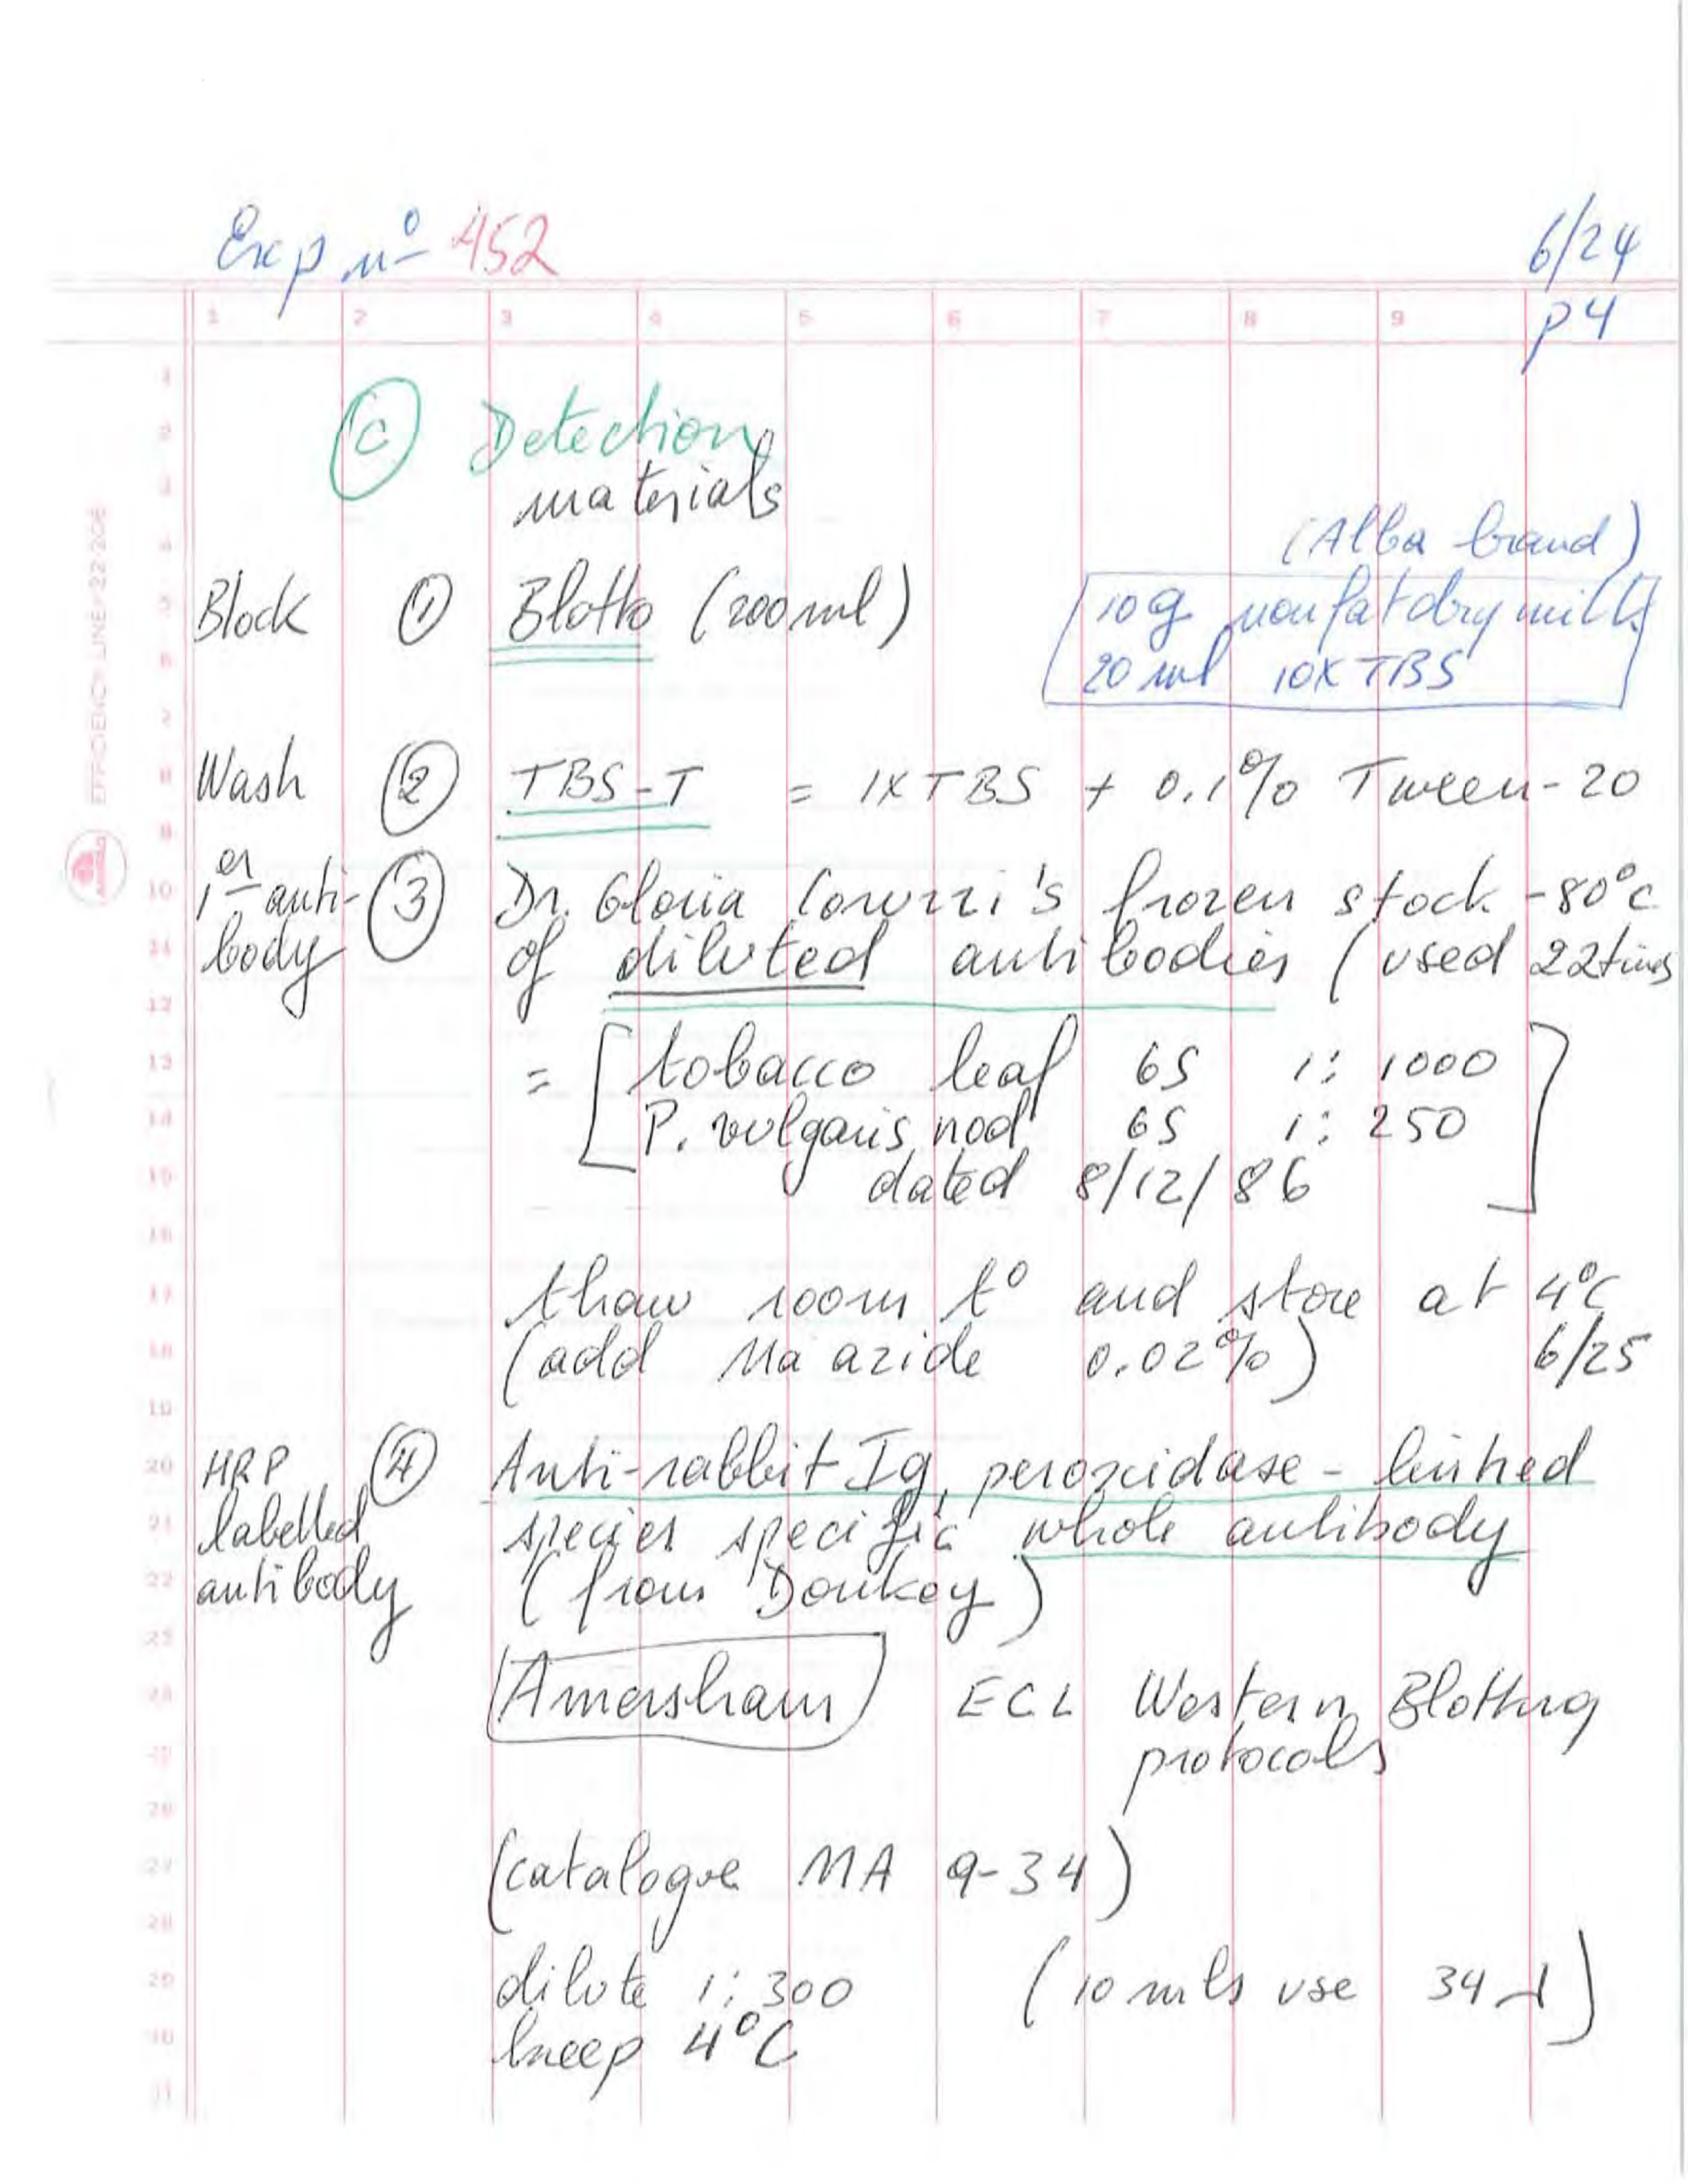 Exp nº 452
6/24
p4
1 2 3 4 5 6 7 8 9
(C) Detection
materials
(Alba brand)
Block (1) Blotto (200 ml)
10g nonfat dry milk
20 ml 10X TBS
Wash (2) TBS-T = 1X TBS + 0.1% Tween-20
1er anti-body (3) Dr. Gloria Coruzzi's frozen stock -80°C
of diluted antibodies (used 22 times
= [tobacco leaf GS 1:1000
P. vulgaris nod GS 1:250
dated 8/12/86]
thaw room t° and store at 4°C
(add Na azide 0.02%) 6/25
HRP labelled antibody (4) Anti-rabbit Ig, peroxidase-linked
species specific whole antibody
(from Donkey)
Amersham ECL Western Blotting
protocols
(catalogue NA 9-34)
dilute 1:300 (10 mls use 34 λ)
keep 4°C
EFFICIENCY LINE 22-206